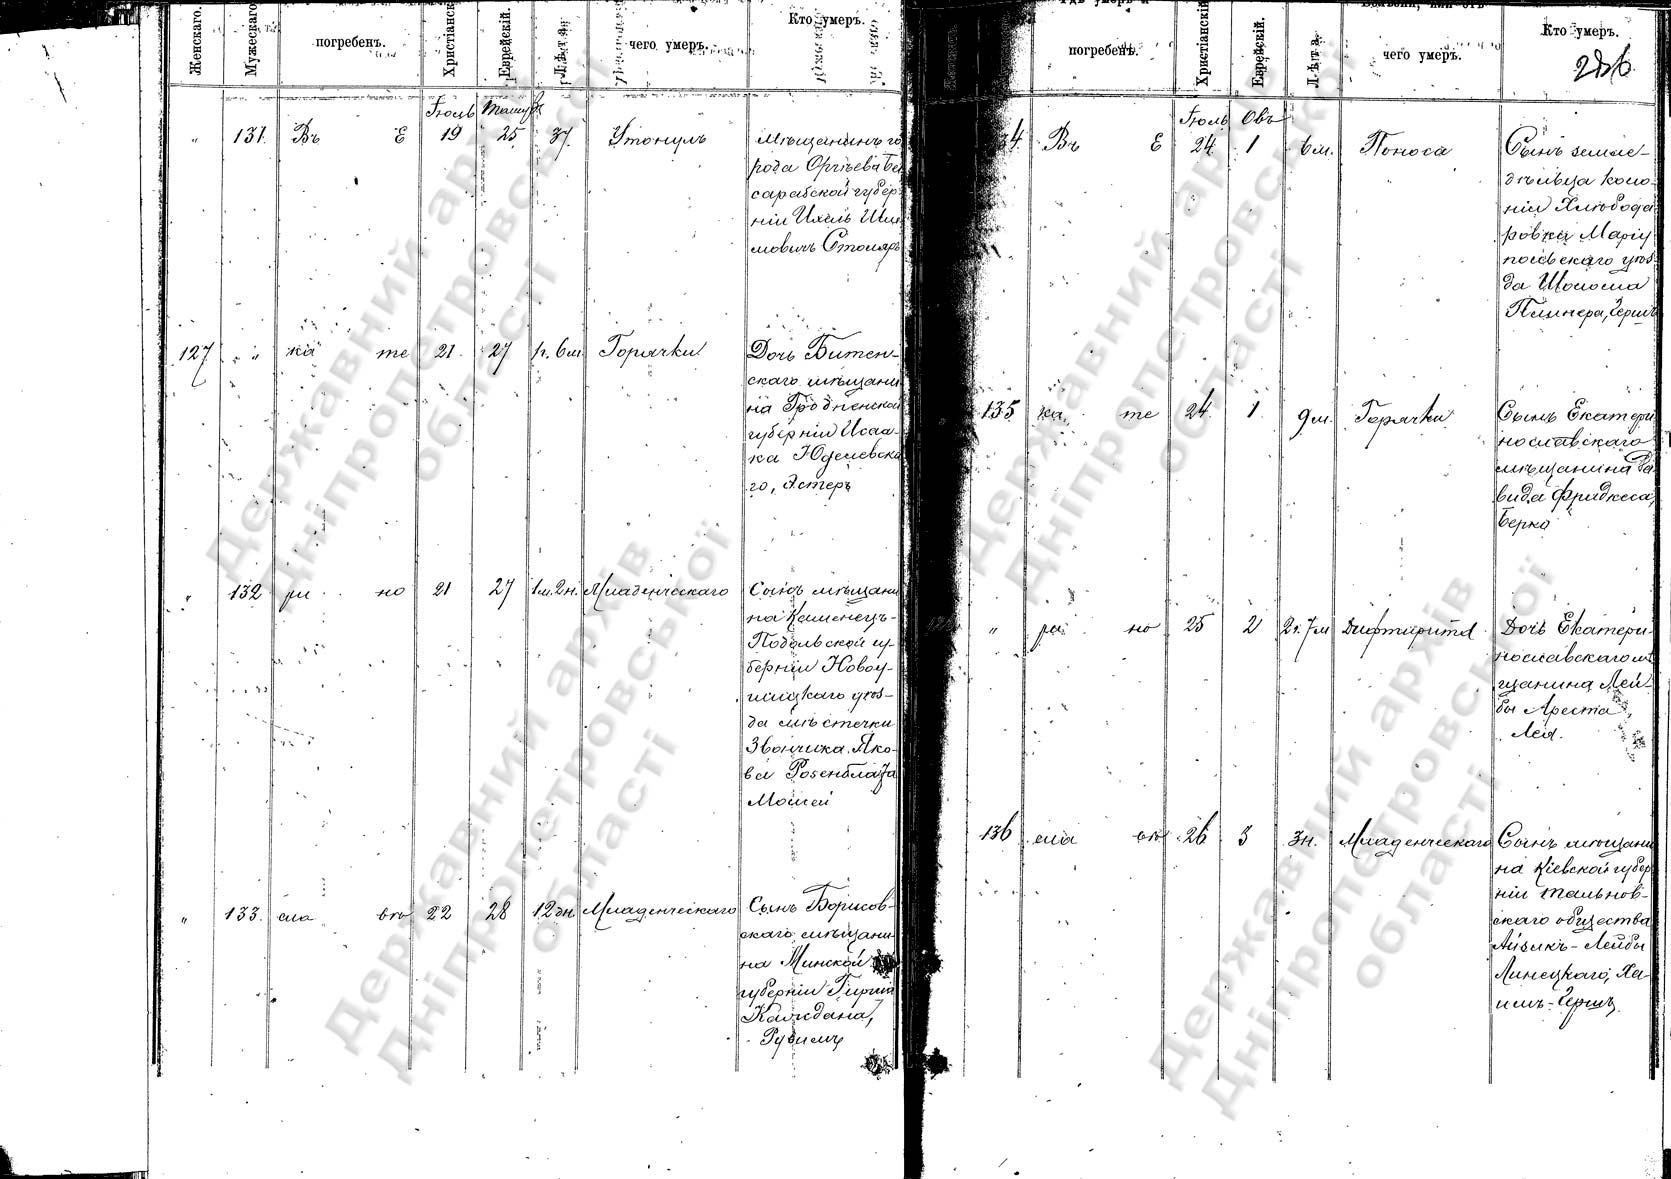 Женскаго.
Мужескаго
погребенъ.
Христіанск
Еврейскій.
Лѣта.
чего умеръ.
Кто умеръ.
Іюль
" 131. Въ Е 19 25 37 Утонулъ
Мѣщанинъ го
рода Оргѣева Бе
сарабской губер
ніи Ихель Шли
мовичъ Столяръ
127 " ка те 21 27 1г. 6м Горячки
Дочь Битен-
скаго мѣщани
на Гродненской
губерніи Исаа-
ка Юделевска
го, Эстеръ
" 132 ри но 21 27 1м.2н. Младенческаго
Сынъ мѣщани
на Каменецъ-
Подольской гу-
берніи Новоу-
шицкаго уѣз-
да мѣстечки
Звончика Яко-
ва Розенблата
Мошей
" 133. сла вѣ 22 28 12дн Младенческаго
Сынъ Борисов-
скаго мѣщани-
на Минской
губерніи Гирша
Рувимъ
погребенъ.
Христіанскій
Еврейскій.
Лѣта.
чего умеръ.
Кто умеръ.
Іюль Овъ
34 Въ Е 24 1 6м. Поноса
Сынъ земле-
дѣльца коло-
ніи Хлѣбода
ровка Маріу
польскаго уѣз
да Шолома
Плинера, Гершъ
135 ка те 24 1 9м. Горячки
Сынъ Екатери
нославскаго
мѣщанина Да
вида Фридкеса,
Берко
" ри но 25 2 2г.7м Дифтирита
Дочь Екатери-
нославскаго мѣ
щанина Лей-
бы Ареста,
Лея.
136 сла вѣ 26 3 3н. Младенческаго
Сынъ мѣщани
на Кіевской губер
ніи Тальнов-
скаго общества
Айзикъ-Лейбы
Линецкаго, Ха-
имъ-Гершъ
Державний архів
Дніпропетровської
області
Державний архів
Дніпропетровської
області
Державний архів
Дніпропетровської
області
Державний архів
Дніпропетровської
області